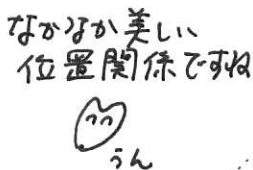 なかなか美しい
位置関係ですね
うん